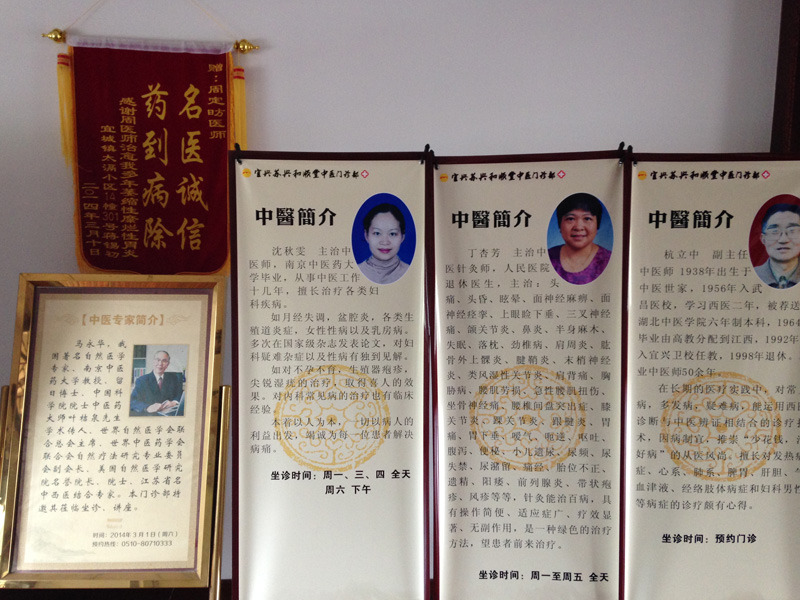 赠：周定昉医师
名医诚信
药到病除
感谢周医师治愈我多年萎缩性糜烂性胃炎
宜城镇太滆小区14幢301号蒋锡初
二〇一四年三月十日
【中医专家简介】
马永华，我
国著名自然医学
专家、南京中医
药大学教授，留
日博士。中国科
学院院士中医药
大师叶桔泉先生
学术传人，世界自然医学会联
合总会主席，世界中医药学会
联合会自然疗法研究专业委员
会副会长，美国自然医学研究
院名誉院长、院士，江苏省名
中西医结合专家。本门诊部特
邀其莅临坐诊、讲座。
时间：2014年3月1日（周六）
预约热线：0510-80710333
宜兴苏兴和顺堂中医门诊部
中醫簡介
沈秋雯 主治中
医师，南京中医药大
学毕业，从事中医工作
十几年，擅长治疗各类妇
科疾病。
如月经失调，盆腔炎，各类生
殖道炎症，女性性病以及乳房病。
多次在国家级杂志发表论文，对妇
科疑难杂症以及性病有独到见解。
如对不孕不育、生殖器疱疹，
尖锐湿疣的治疗，取得喜人的效
果。对内科常见病的治疗也有临床
经验
本着以人为本，一切以病人的
利益出发，竭诚为每一位患者解决
病痛。
坐诊时间：周一、三、四 全天
周六 下午
宜兴苏兴和顺堂中医门诊部
中醫簡介
丁杏芳 主治中
医针灸师，人民医院
退休医生，主治：头
痛、头昏、眩晕、面神经麻痹、面
神经痉挛、上眼睑下垂、三叉神经
痛、颞关节炎、鼻炎、半身麻木、
失眠、落枕、劲椎病、肩周炎、肱
骨外上髁炎、腱鞘炎、末梢神经
炎、类风湿性关节炎、肩背痛、胸
胁痛、腰肌劳损、急性腰肌扭伤、
坐骨神经痛、腰椎间盘突出症、膝
关节炎、踝关节炎、跟腱炎、胃
痛、胃下垂、嗳气、呃逆、呕吐、
腹泻、便秘、小儿遗尿、尿频、尿
失禁、尿潴留、痛经、胎位不正、
遗精、阳痿、前列腺炎、带状疱
疹、风疹等等，针灸能治百病，具
有操作简便、适应症广、疗效显
著、无副作用，是一种绿色的治疗
方法，望患者前来治疗。
坐诊时间：周一至周五 全天
宜兴苏兴和顺堂中医门诊部
中醫簡介
杭立中 副主任
中医师 1938年出生于
中医世家，1956年入武
昌医校，学习西医二年，被荐送
湖北中医学院六年制本科，1964
毕业由高教分配到江西，1992年
入宜兴卫校任教，1998年退休。
业中医师50余年。
在长期的医疗实践中，对常
病，多发病，疑难病，能运用西医
诊断与中医辨证相结合的诊疗技
术，因病制宜，推崇“少花钱，治
好病”的从医风尚。擅长对发热病
症、心系、肺系、脾胃、肝胆、
血津液、经络肢体病症和妇科男性
等病症的诊疗颇有心得。
坐诊时间：预约门诊